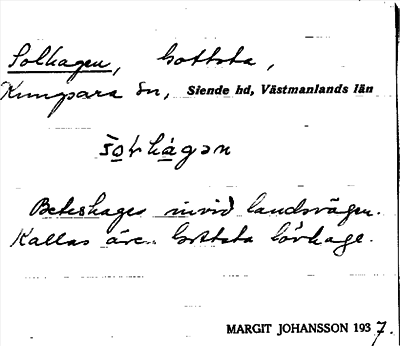 Solhagen, Gottsta,
Kumpara sn, Siende hd, Västmanlands län
so̱ḷhàgən
Beteshage invid landsvägen.
Kallas äv. Gottsta lövhage.
MARGIT JOHANSSON 1937.